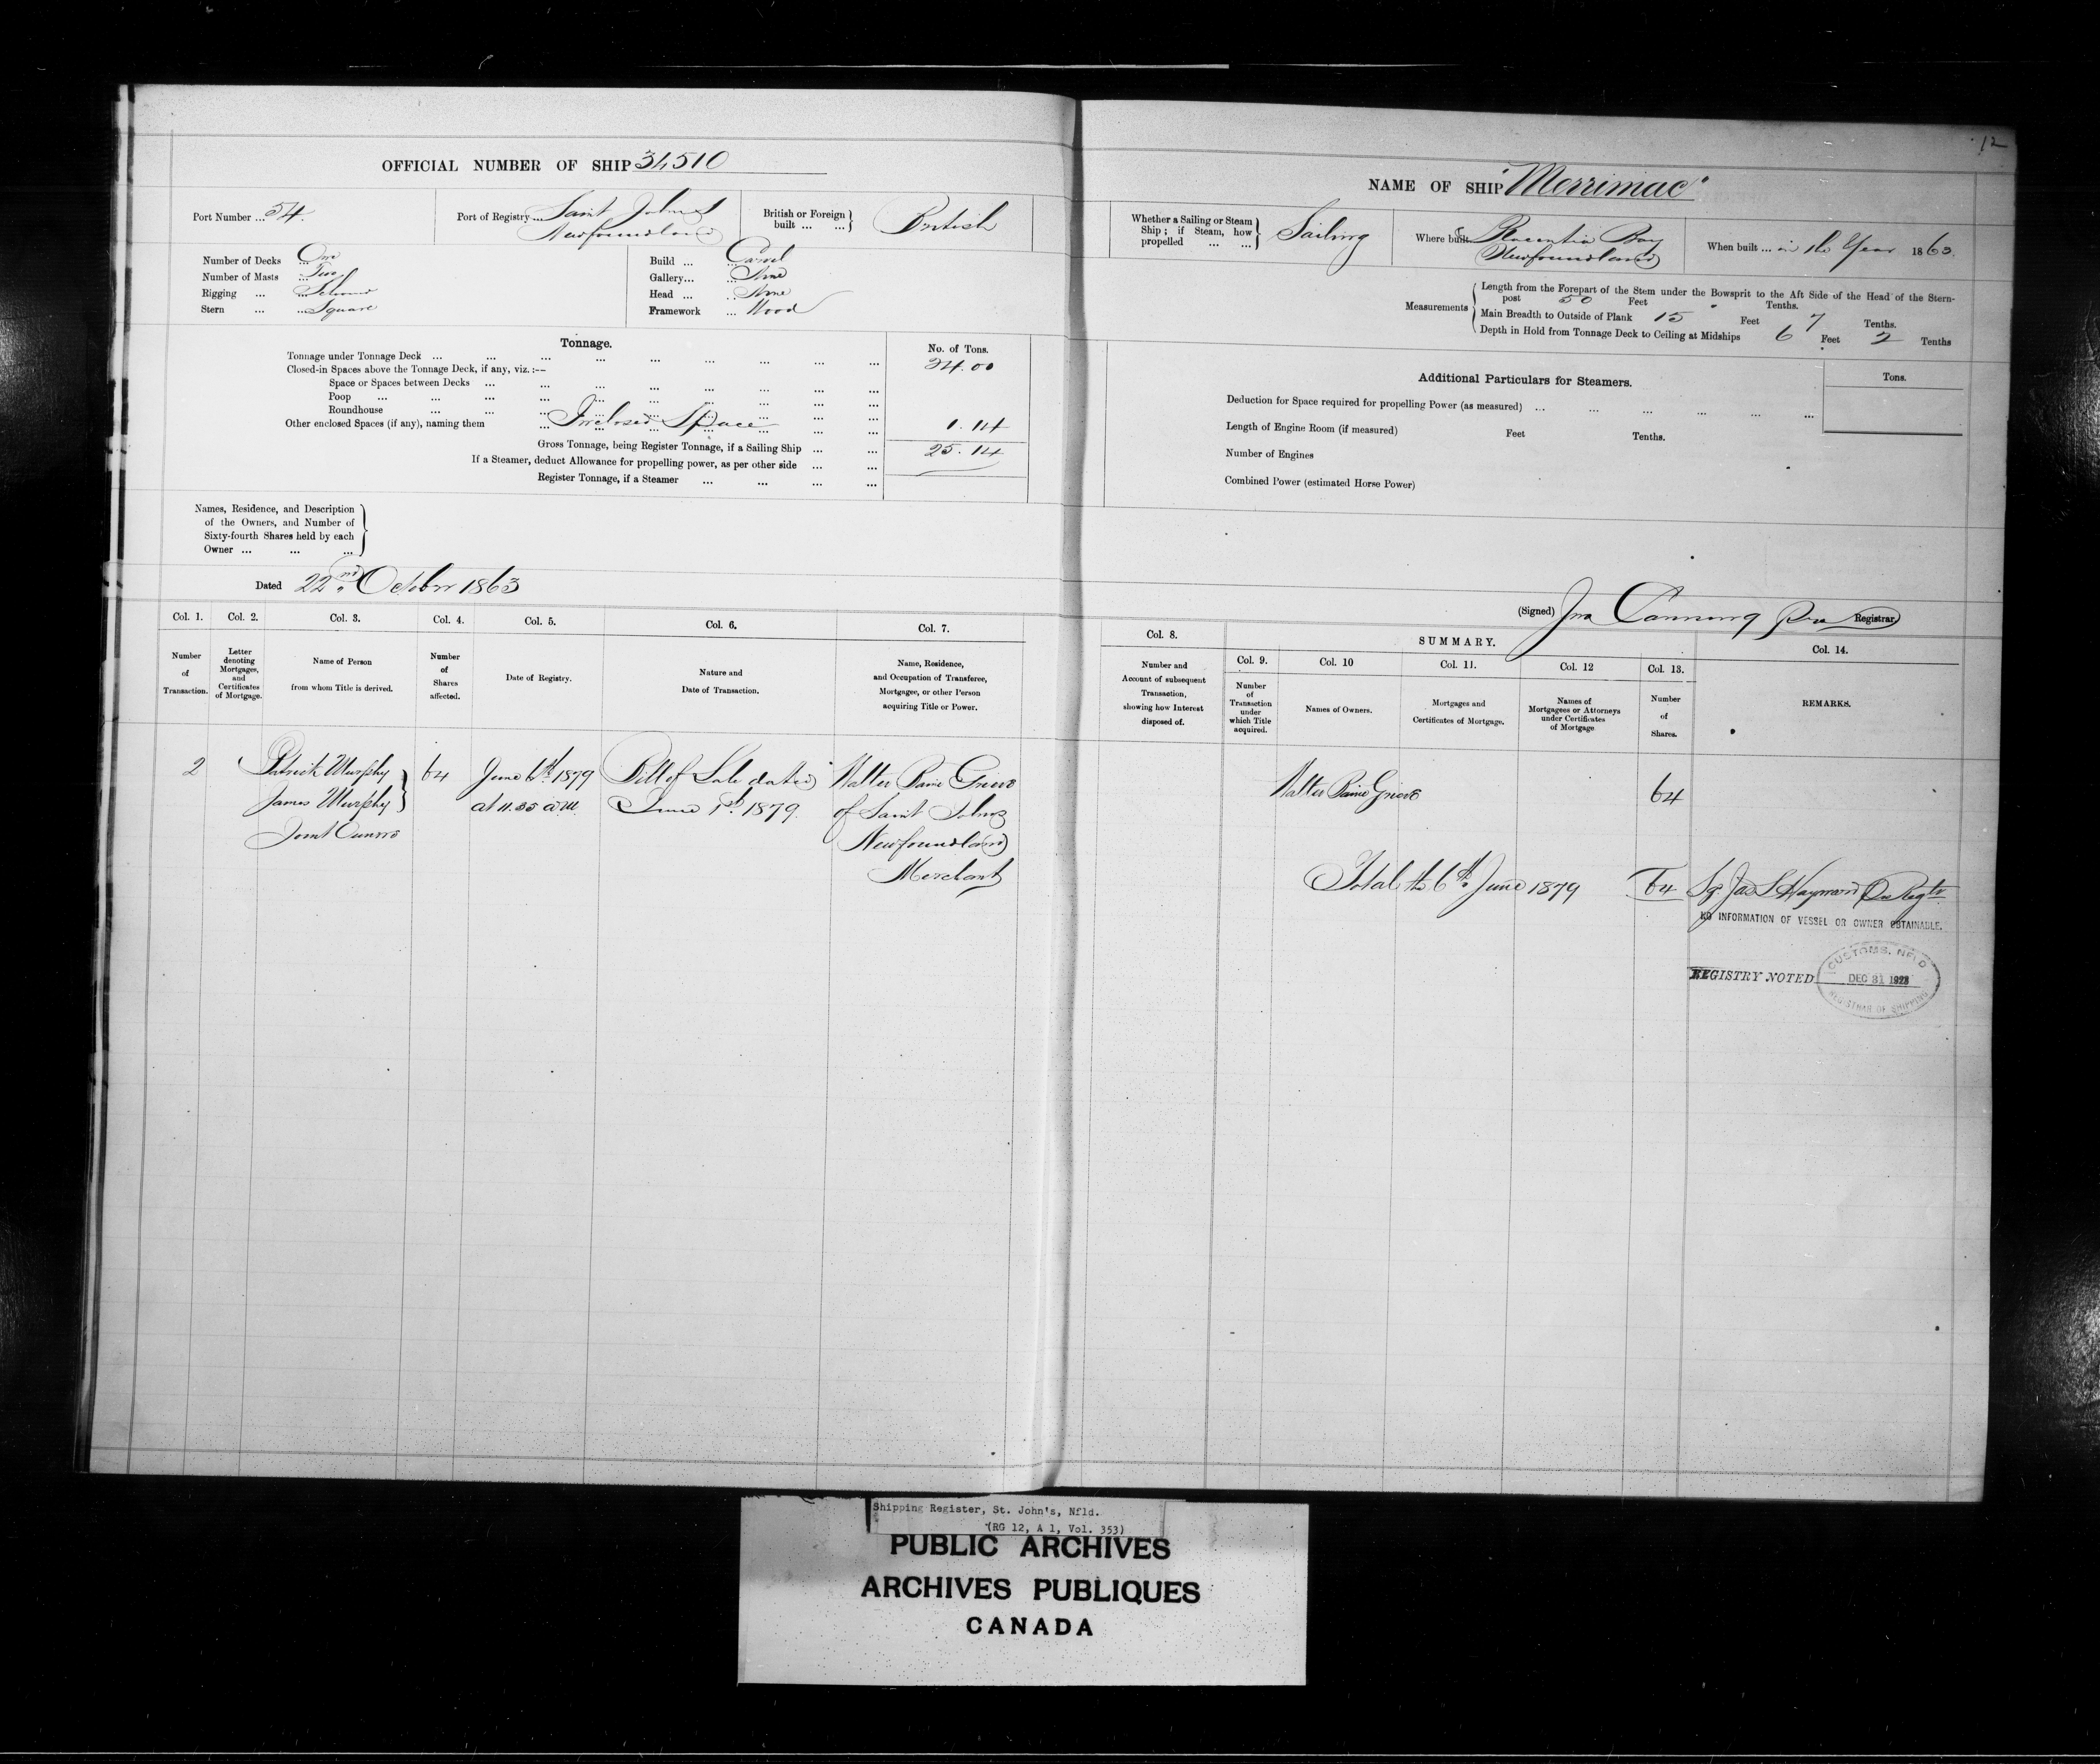 12
OFFICIAL NUMBER OF SHIP 34510
Port Number ... 54.
Port of Registry ... Saint John's
Newfoundland
British or Foreign built ... ... British
Number of Decks ... One
Number of Masts ... Two
Rigging ... ... Schooner
Stern ... ... Square
Build ... ... Carvel
Gallery... ... None
Head ... ... None
Framework ... Wood
Tonnage.
No. of Tons.
Tonnage under Tonnage Deck ... 24.00
Closed-in Spaces above the Tonnage Deck, if any, viz. :--
Space or Spaces between Decks ...
Poop ...
Roundhouse ...
Other enclosed Spaces (if any), naming them ... Inclosed Space 1.14
Gross Tonnage, being Register Tonnage, if a Sailing Ship ... 25.14
If a Steamer, deduct Allowance for propelling power, as per other side ...
Register Tonnage, if a Steamer ...
Names, Residence, and Description
of the Owners, and Number of
Sixty-fourth Shares held by each
Owner ... ... ...
Dated 22nd October 1863
Col. 1. Col. 2. Col. 3. Col. 4. Col. 5. Col. 6. Col. 7.
Number of Transaction.
Letter denoting Mortgages, and Certificates of Mortgage.
Name of Person from whom Title is derived.
Number of Shares affected.
Date of Registry.
Nature and Date of Transaction.
Name, Residence, and Occupation of Transferee, Mortgagee, or other Person acquiring Title or Power.
2 Patrick Murphy 64 June 6th 1879 Bill of Sale dated Walter Baine Grieve
James Murphy at 11.35 a.m. June 1st 1879. of Saint John's
Joint Owners Newfoundland
Merchant
NAME OF SHIP "Merrimac"
Whether a Sailing or Steam Ship ; if Steam, how propelled ... ... Sailing
Where built Placentia Bay
Newfoundland
When built ... in the Year 1863.
Measurements
Length from the Forepart of the Stem under the Bowsprit to the Aft Side of the Head of the Stern-
post 50 Feet Tenths.
Main Breadth to Outside of Plank 15 Feet 7 Tenths.
Depth in Hold from Tonnage Deck to Ceiling at Midships 6 Feet 2 Tenths
Additional Particulars for Steamers.
Tons.
Deduction for Space required for propelling Power (as measured) ...
Length of Engine Room (if measured) Feet Tenths.
Number of Engines
Combined Power (estimated Horse Power)
(Signed) Jno Canning Registrar
Col. 8. SUMMARY. Col. 14.
Col. 9. Col. 10 Col. 11. Col. 12 Col. 13.
Number and Account of subsequent Transaction, showing how Interest disposed of.
Number of Transaction under which Title acquired.
Names of Owners.
Mortgages and Certificates of Mortgage.
Names of Mortgagees or Attorneys under Certificates of Mortgage
Number of Shares.
REMARKS.
Walter Baine Grieve 64
Total to 6th June 1879 64 Sg. Jas S Hayward
NO INFORMATION OF VESSEL OR OWNER OBTAINABLE.
REGISTRY NOTED
CUSTOMS, NFLD
DEC 31
REGISTRAR OF SHIPPING
Shipping Register, St. John's, Nfld.
(RG 12, A 1, Vol. 353)
PUBLIC ARCHIVES
ARCHIVES PUBLIQUES
CANADA